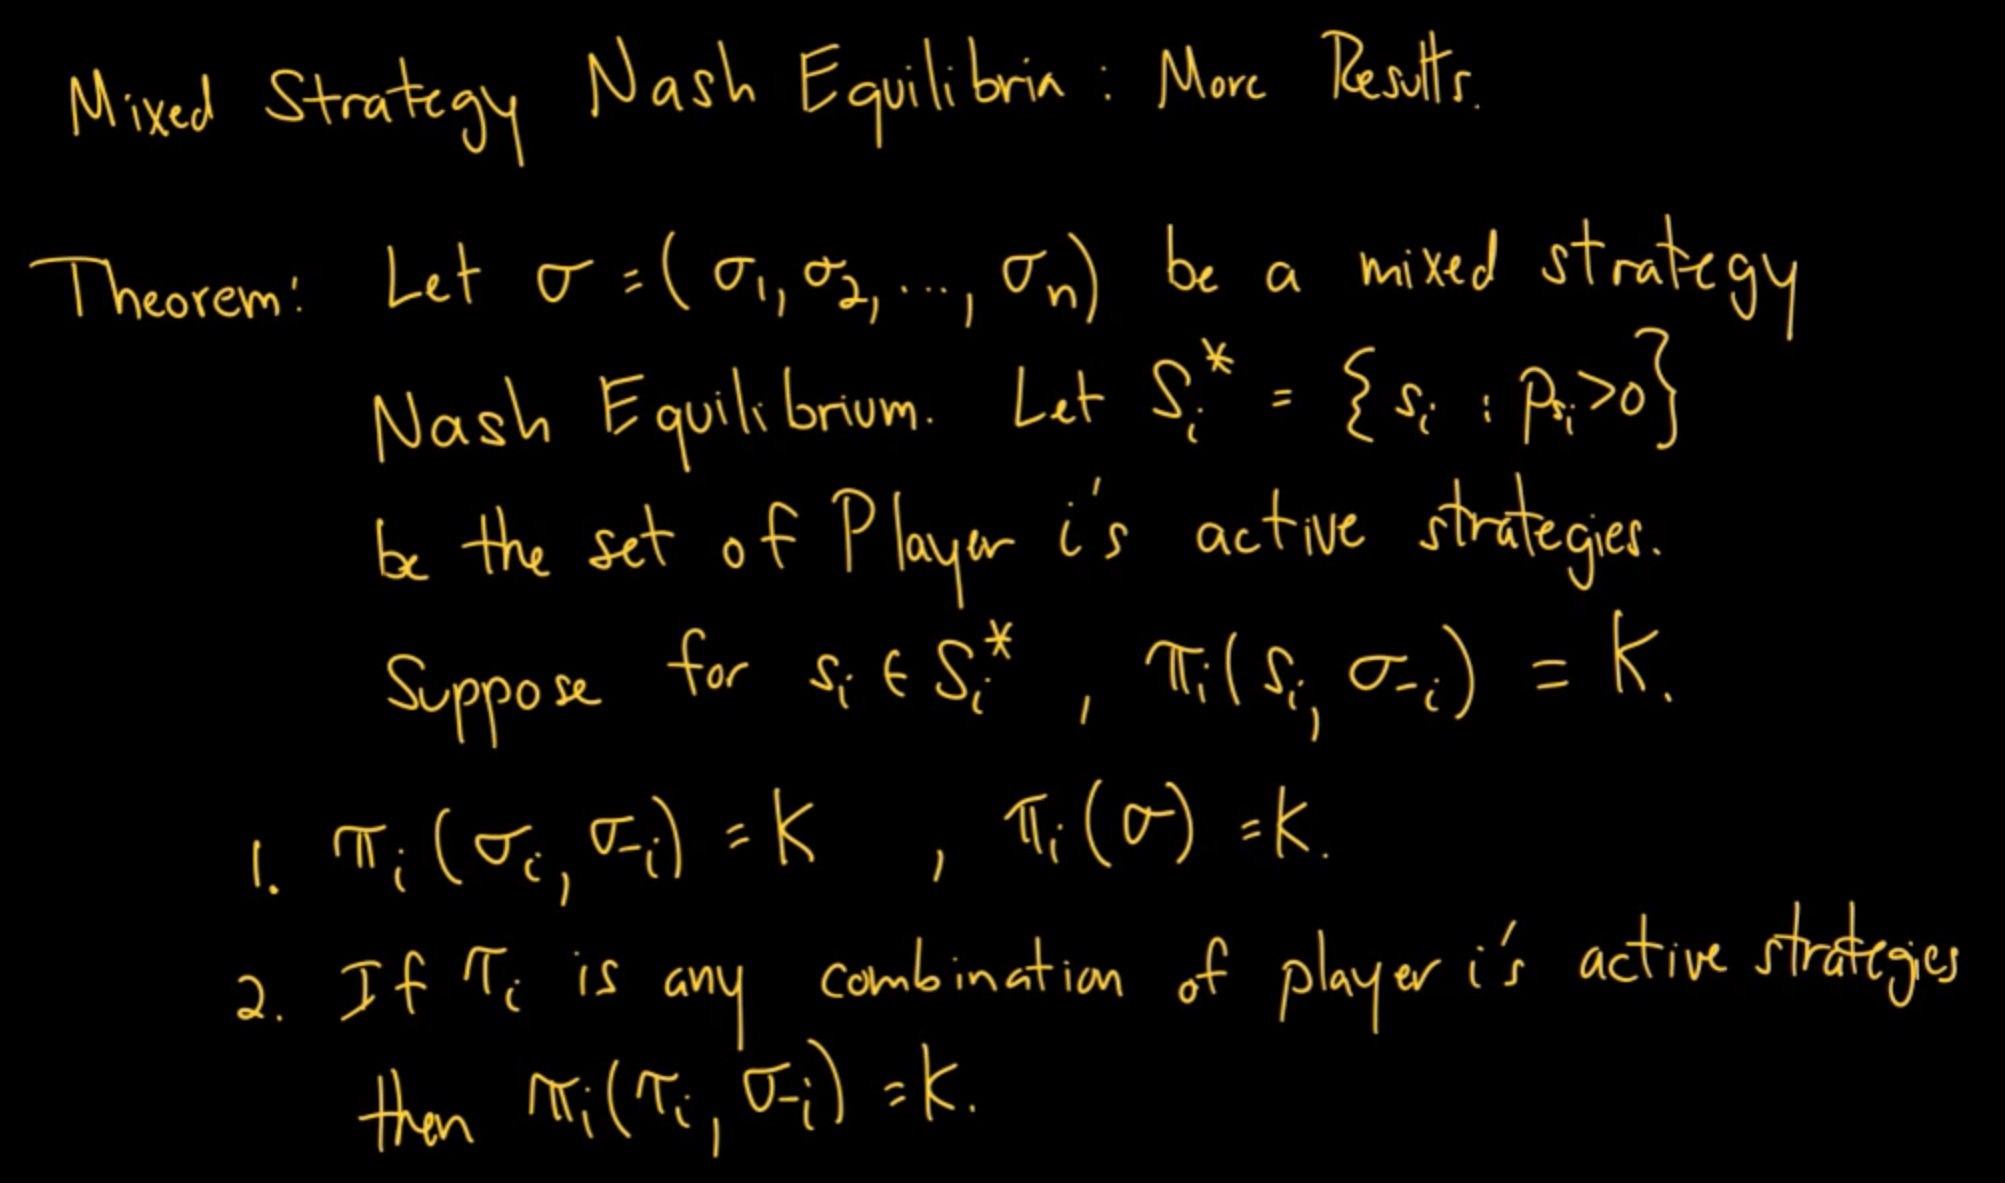 Mixed Strategy Nash Equilibria : More Results.
Theorem: Let σ = (σ₁, σ₂, ..., σₙ) be a mixed strategy
Nash Equilibrium. Let Sᵢ* = {sᵢ : p_{sᵢ} > 0}
be the set of Player i's active strategies.
Suppose for sᵢ ∈ Sᵢ* , πᵢ(sᵢ, σ₋ᵢ) = K.
1. πᵢ(σᵢ, σ₋ᵢ) = K , πᵢ(σ) = K.
2. If τᵢ is any combination of player i's active strategies
then πᵢ(τᵢ, σ₋ᵢ) = K.